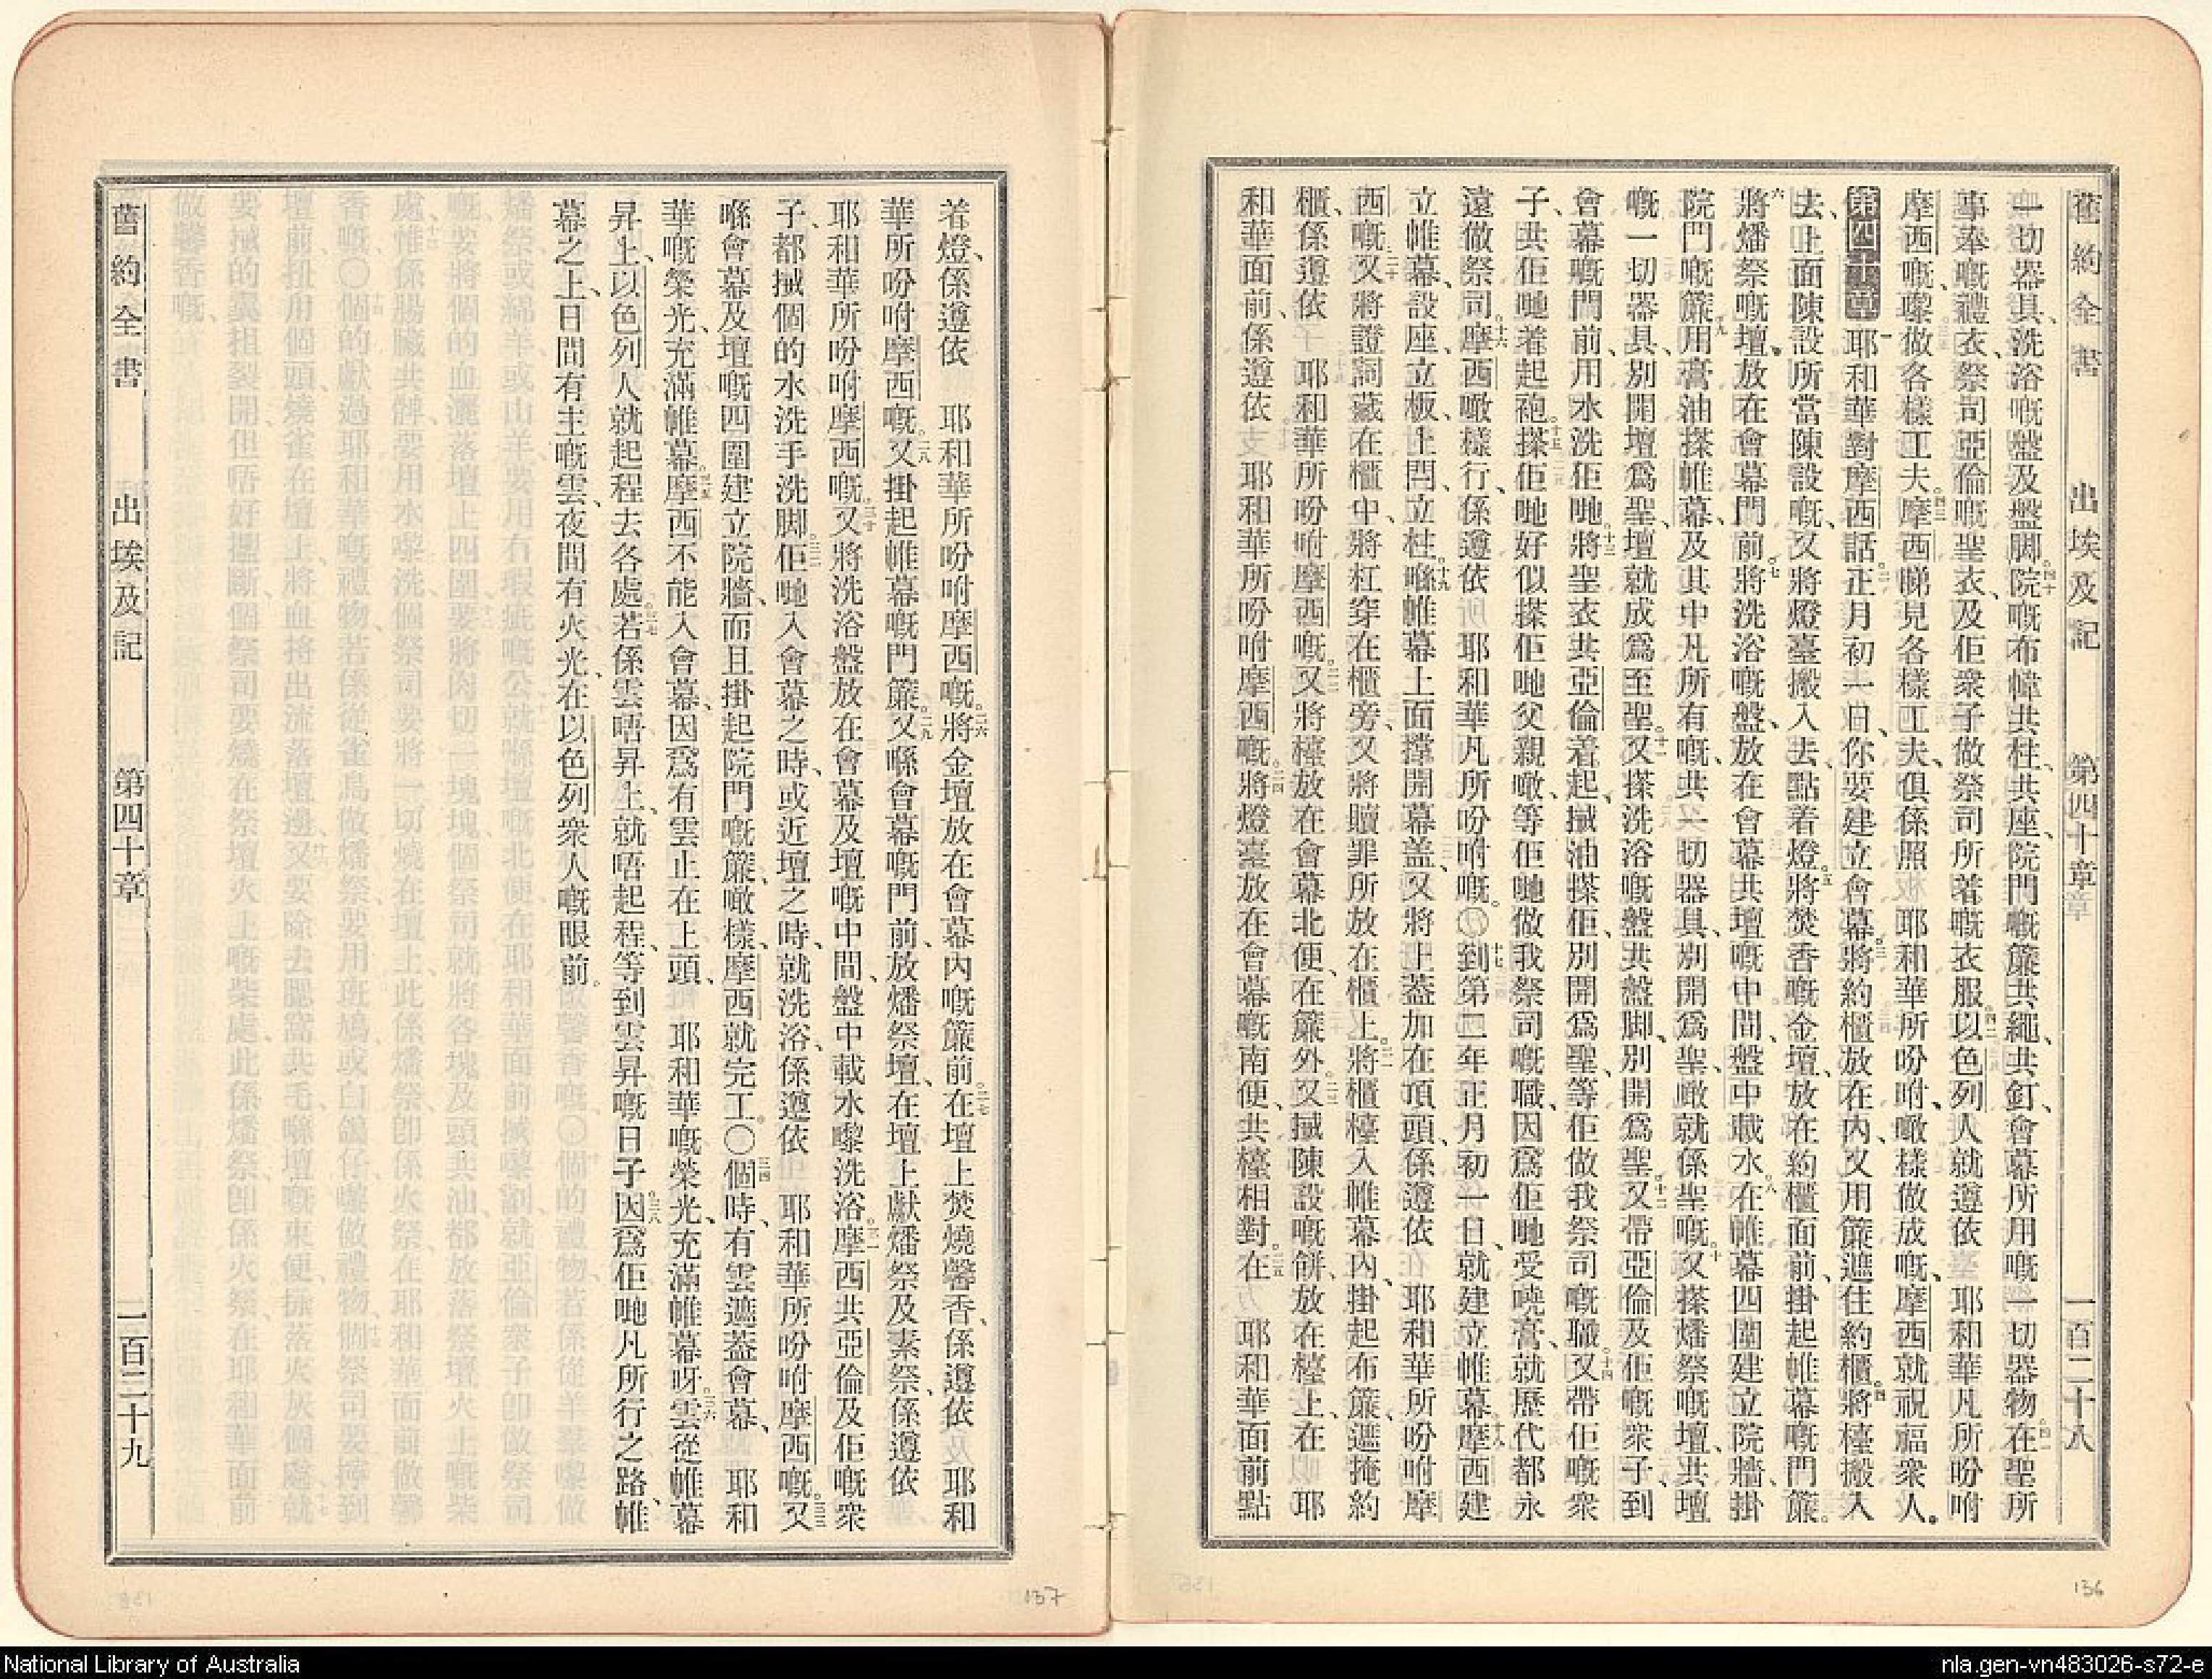 舊約全書 出埃及記 第四十章 一百二十八
一切器具、洗浴嘅盤及盤脚。院嘅布幃共柱、共座、院門嘅簾共繩、共釘、會幕所用嘅一切器物。在聖所
事奉嘅禮衣、祭司亞倫嘅聖衣、及佢衆子做祭司所着嘅衣服。以色列人就遵依 耶和華凡所吩咐
摩西嘅、嚟做各樣工夫。摩西睇見各樣工夫、俱係照 耶和華所吩咐、噉樣做成嘅、摩西就祝福衆人。
第四十章 耶和華對摩西話。正月初一日、你要建立會幕。將約櫃放在內、又用簾遮住約櫃。將檯搬入
去、上面陳設所當陳設嘅、又將燈臺搬入去、點着燈。將焚香嘅金壇、放在約櫃面前、掛起帷幕嘅門簾。
將燔祭嘅壇、放在會幕門前。將洗浴嘅盤、放在會幕共壇嘅中間、盤中載水。在帷幕四圍建立院牆、掛
院門嘅簾。用膏油搽帷幕、及其中凡所有嘅、共一切器具、別開爲聖、噉就係聖嘅。又搽燔祭嘅壇、共壇
嘅一切器具、別開壇爲聖、壇就成爲至聖。又搽洗浴嘅盤共盤脚、別開爲聖。又帶亞倫及佢嘅衆子、到
會幕嘅門前、用水洗佢哋。將聖衣共亞倫着起、搣油搽佢、別開爲聖、等佢做我祭司嘅職。又帶佢嘅衆
子、共佢哋着起袍。搽佢哋好似搽佢哋父親噉、等佢哋做我祭司嘅職、因爲佢哋受曉膏、就歷代都永
遠做祭司。摩西噉樣行、係遵依 耶和華凡所吩咐嘅。〇到第二年正月初一日、就建立帷幕。摩西建
立帷幕、設座、立板、上閂、立柱。喺帷幕上面撑開幕蓋、又將上蓋加在頂頭、係遵依 耶和華所吩咐摩
西嘅。又將證詞藏在櫃中、將杠穿在櫃旁、又將贖罪所放在櫃上。將櫃擡入帷幕內、掛起布簾、遮掩約
櫃、係遵依 耶和華所吩咐摩西嘅。又將檯放在會幕北便、在簾外。又搣陳設嘅餅、放在檯上、在 耶
和華面前、係遵依 耶和華所吩咐摩西嘅。將燈臺放在會幕嘅南便、共檯相對。在 耶和華面前點
136
舊約全書 出埃及記 第四十章 一百二十九
着燈、係遵依 耶和華所吩咐摩西嘅。將金壇放在會幕內嘅簾前。在壇上焚燒馨香、係遵依 耶和
華所吩咐摩西嘅。又掛起帷幕嘅門簾。又喺會幕嘅門前、放燔祭壇、在壇上獻燔祭及素祭、係遵依
耶和華所吩咐摩西嘅。又將洗浴盤放在會幕及壇嘅中間、盤中載水嚟洗浴。摩西共亞倫及佢嘅衆
子、都搣個的水洗手洗脚。佢哋入會幕之時、或近壇之時、就洗浴、係遵依 耶和華所吩咐摩西嘅。又
喺會幕及壇嘅四圍建立院牆、而且掛起院門嘅簾、噉樣、摩西就完工。〇個時、有雲遮蓋會幕、 耶和
華嘅榮光、充滿帷幕。摩西不能入會幕、因爲有雲止在上頭、 耶和華嘅榮光、充滿帷幕呀。雲從帷幕
昇上、以色列人就起程去各處。若係雲唔昇上、就唔起程、等到雲昇嘅日子。因爲佢哋凡所行之路、帷
幕之上、日間有主嘅雲、夜間有火光、在以色列衆人嘅眼前。
137
National Library of Australia
nla.gen-vn483026-s72-e